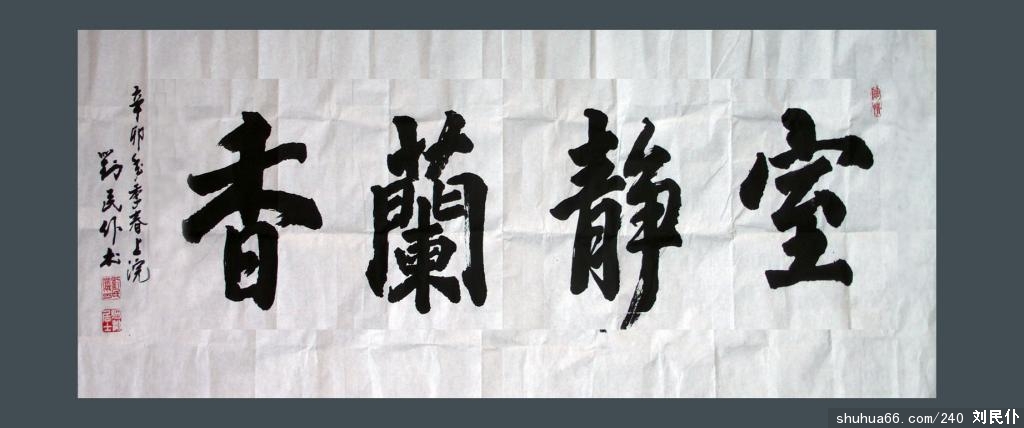 室静蘭香
辛卯年季春上浣
劉民仆书
shuhua66.com/240 刘民仆